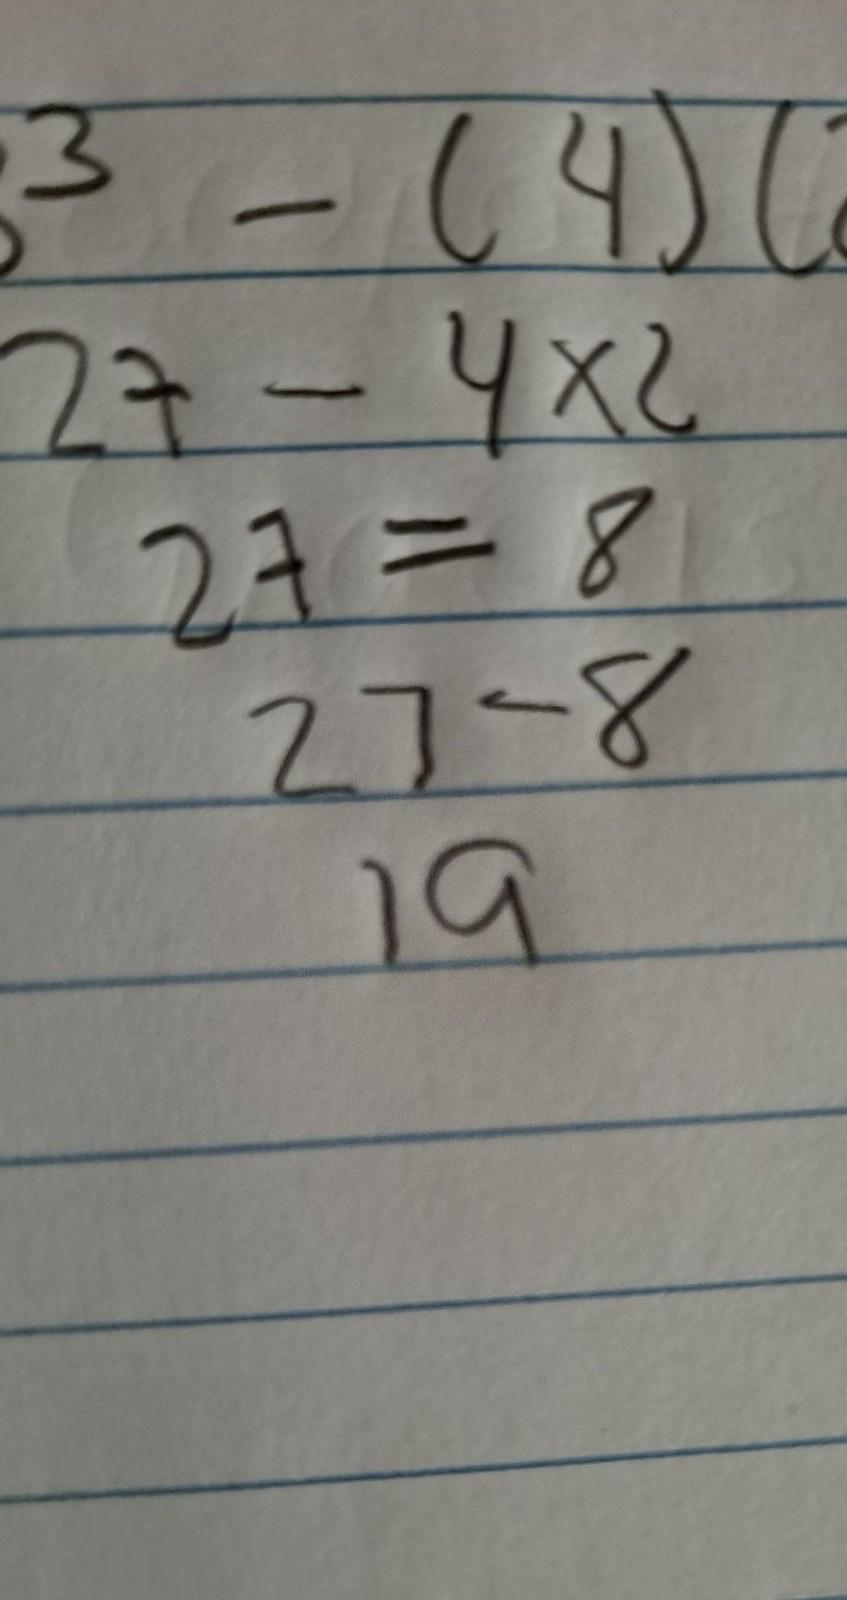 3³ - (4)(2
27 - 4x2
27 = 8
27 - 8
19